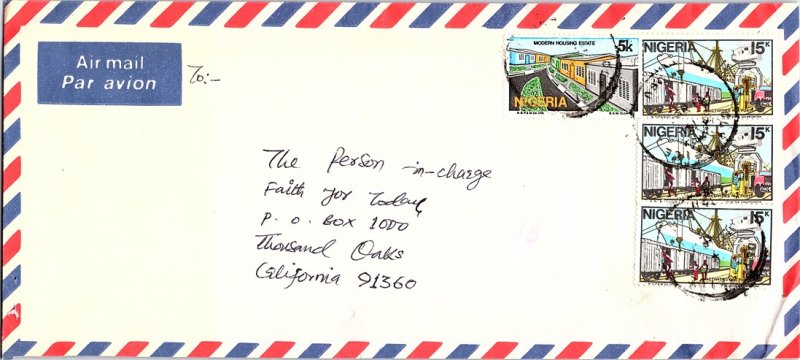 Air mail
Par avion
To:-
MODERN HOUSING ESTATE 5k
NIGERIA
NIGERIA 15K
NIGERIA 15K
NIGERIA 15K
The Person in-charge
Faith for Today
P. O. BOX 1000
Thousand Oaks
California 91360